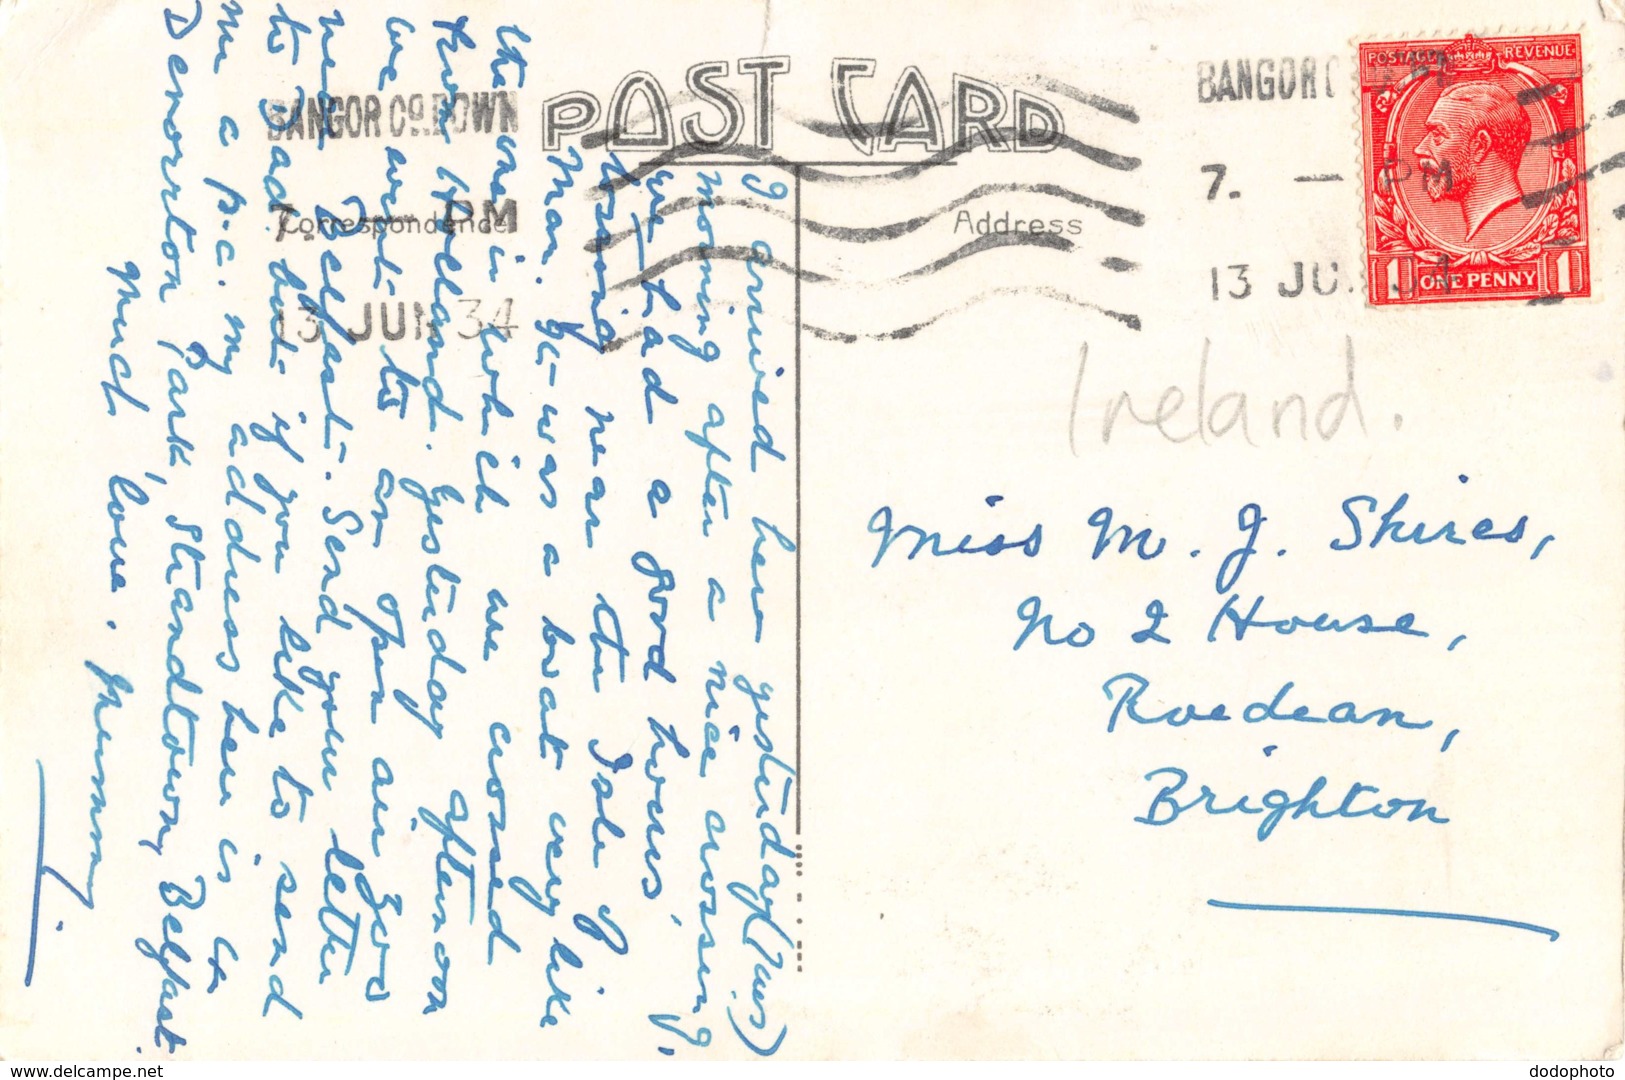 POST CARD
Correspondence
Address
BANGOR CO. DOWN
7. — PM
13 JUN 34
BANGOR C
7. — PM
13 JU 34
POSTAGE REVENUE
1 ONE PENNY 1
Ireland.
Miss M. J. Skires,
No 2 House,
Roedean,
Brighton
I arrived here yesterday (Tues)
morning after a nice crossing,
we had a good hours'
tossing near the Isle of
Man. It was a boat very like
the one in which we crossed
from Holland. Yesterday afternoon
we went to an open air zoo
near Belfast. Send your letter
to Dad, but if you like to send
me a p.c. my address here is
Park, Strandtown, Belfast.
Much love. Mummy.
www.delcampe.net
dodophoto